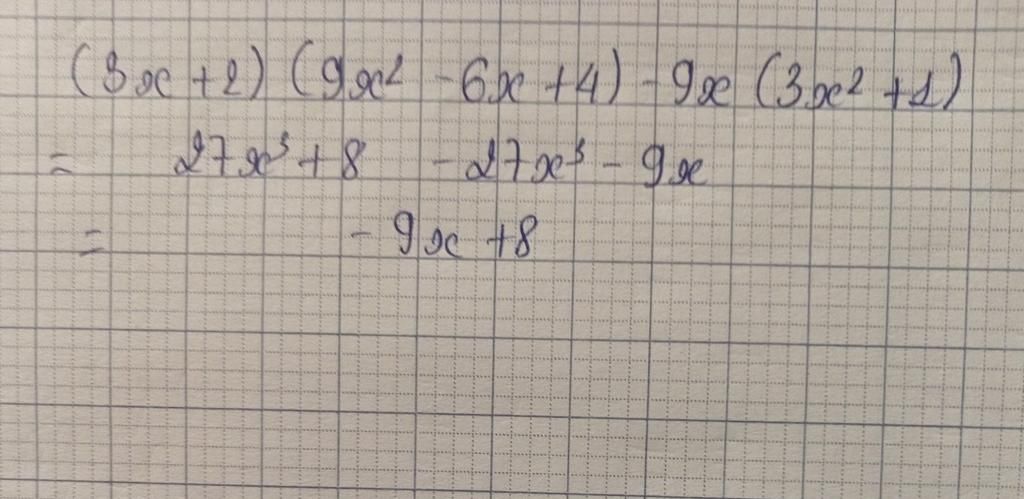 (3x + 2) (9x² - 6x + 4) - 9x (3x² + 1)
= 27x³ + 8 - 27x³ - 9x
= - 9x + 8